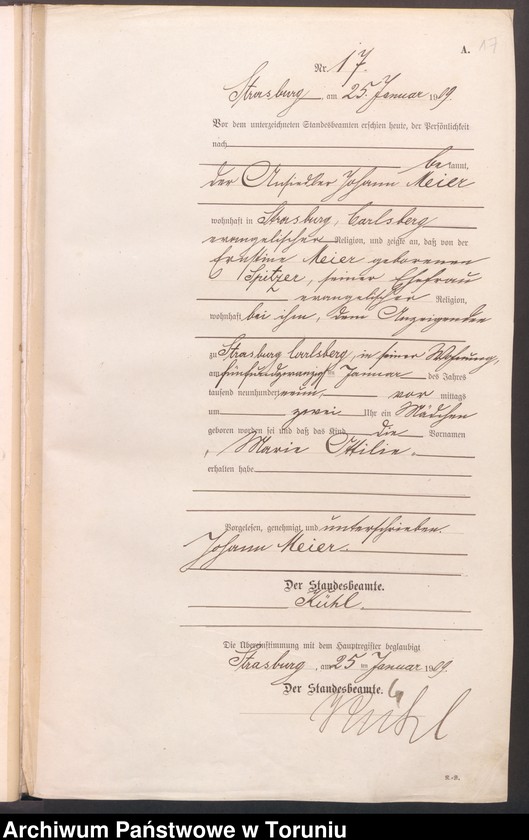 A. 17
Nr. 17.
Strasburg am 25. Januar 1909.
Vor dem unterzeichneten Standesbeamten erschien heute, der Persönlichkeit
nach
bekannt,
der Ansiedler Johann Meier
wohnhaft in Strasburg, Carlsberg
evangelischer Religion, und zeigte an, daß von der
Ernstine Meier geborenen
Spitzer, seiner Ehefrau
evangelischer Religion,
wohnhaft bei ihm, dem Anzeigenden
zu Strasburg Carlsberg, in seiner Wohnung,
am fünfundzwanzigsten Januar des Jahres
tausend neunhundert neun, vor mittags
um zwei Uhr ein Mädchen
geboren worden sei und daß das Kind die Vornamen
Marie Ottilie
erhalten habe
Vorgelesen, genehmigt und unterschrieben.
Johann Meier.
Der Standesbeamte.
Kühl.
Die Übereinstimmung mit dem Hauptregister beglaubigt
Strasburg, am 25 ten Januar 1909.
Der Standesbeamte.
Kühl
K.-B.
Archiwum Państwowe w Toruniu